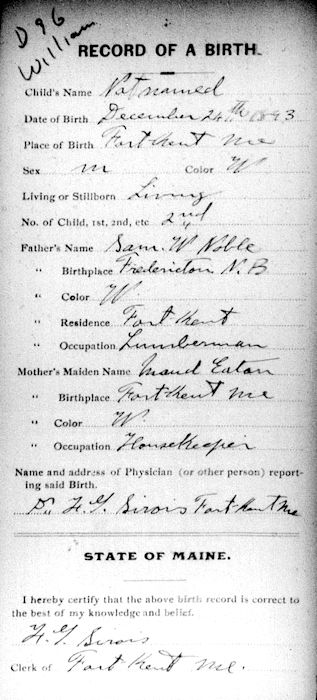 D 96
William
RECORD OF A BIRTH.
Child's Name Not named
Date of Birth December 24th 1893
Place of Birth Fort Kent Me
Sex m Color W
Living or Stillborn Living
No. of Child, 1st, 2nd, etc 2nd
Father's Name Sam. W Noble
" Birthplace Fredericton N. B
" Color W.
" Residence Fort Kent
" Occupation Lumberman
Mother's Maiden Name Maud Eaton
" Birthplace Fort Kent Me
" Color W.
" Occupation Housekeeper
Name and address of Physician (or other person) report-
ing said Birth.
Dr H. G. Sirois Fort Kent Me
STATE OF MAINE.
I hereby certify that the above birth record is correct to
the best of my knowledge and belief.
H. G. Sirois
Clerk of Fort Kent Me.